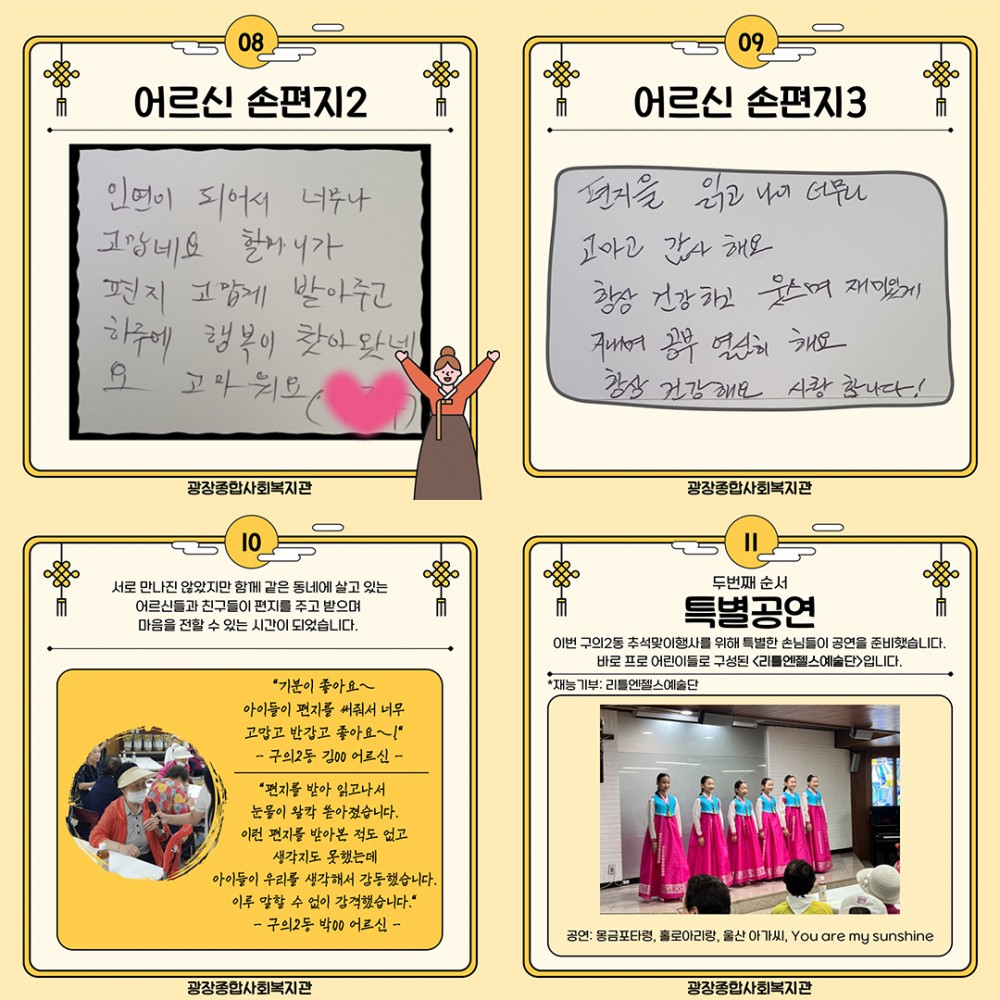 08
어르신 손편지2
인연이 되어서 너무나
고맙네요 할머니가
편지 고맙게 받아주고
하주에 행복이 찾아왔네
요 고마워요
광장종합사회복지관
09
어르신 손편지3
편지을 읽고 나이 너무나
고마고 감사 해요
항상 건강하고 웃스며 재미있게
지내며 공부 열심히 해요
항상 건강해요 사랑 합니다!
광장종합사회복지관
10
서로 만나진 않았지만 함께 같은 동네에 살고 있는
어르신들과 친구들이 편지를 주고 받으며
마음을 전할 수 있는 시간이 되었습니다.
"기분이 좋아요~
아이들이 편지를 써줘서 너무
고맙고 반갑고 좋아요~!"
- 구의2동 김00 어르신 -
"편지를 받아 읽고나서
눈물이 왈칵 쏟아졌습니다.
이런 편지를 받아본 적도 없고
생각지도 못했는데
아이들이 우리를 생각해서 감동했습니다.
이루 말할 수 없이 감격했습니다."
- 구의2동 박00 어르신 -
광장종합사회복지관
11
두번째 순서
특별공연
이번 구의2동 추석맞이행사를 위해 특별한 손님들이 공연을 준비했습니다.
바로 프로 어린이들로 구성된 <리틀엔젤스예술단>입니다.
*재능기부: 리틀엔젤스예술단
공연: 몽금포타령, 홀로아리랑, 울산 아가씨, You are my sunshine
광장종합사회복지관